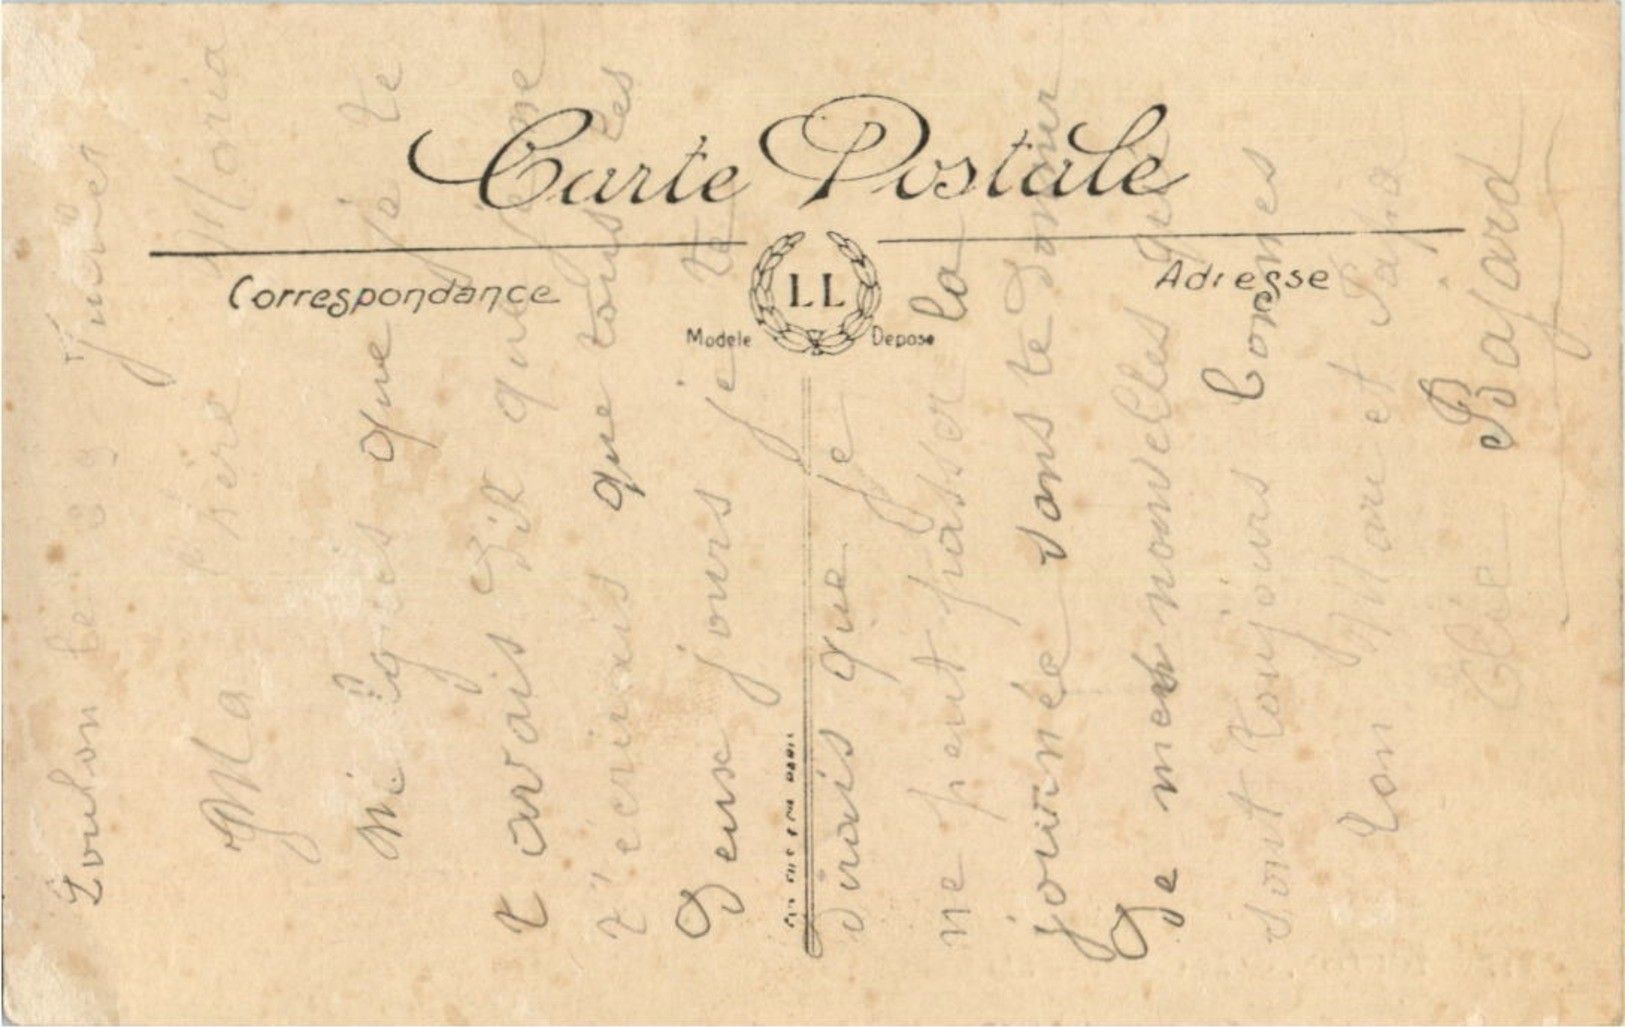 Carte Postale
Correspondance
LL
Adresse
Modèle Déposé
Toulon le 29 Janvier
Ma Maria
que je te
t avais dit que je ne
t'écrirais que tous les
Deux jours je te
Dirais que je
ne peut passer la
journée sans te donner
De mes nouvelles qui
sont toujours bonnes
Ton Mari et Papa
Bajard